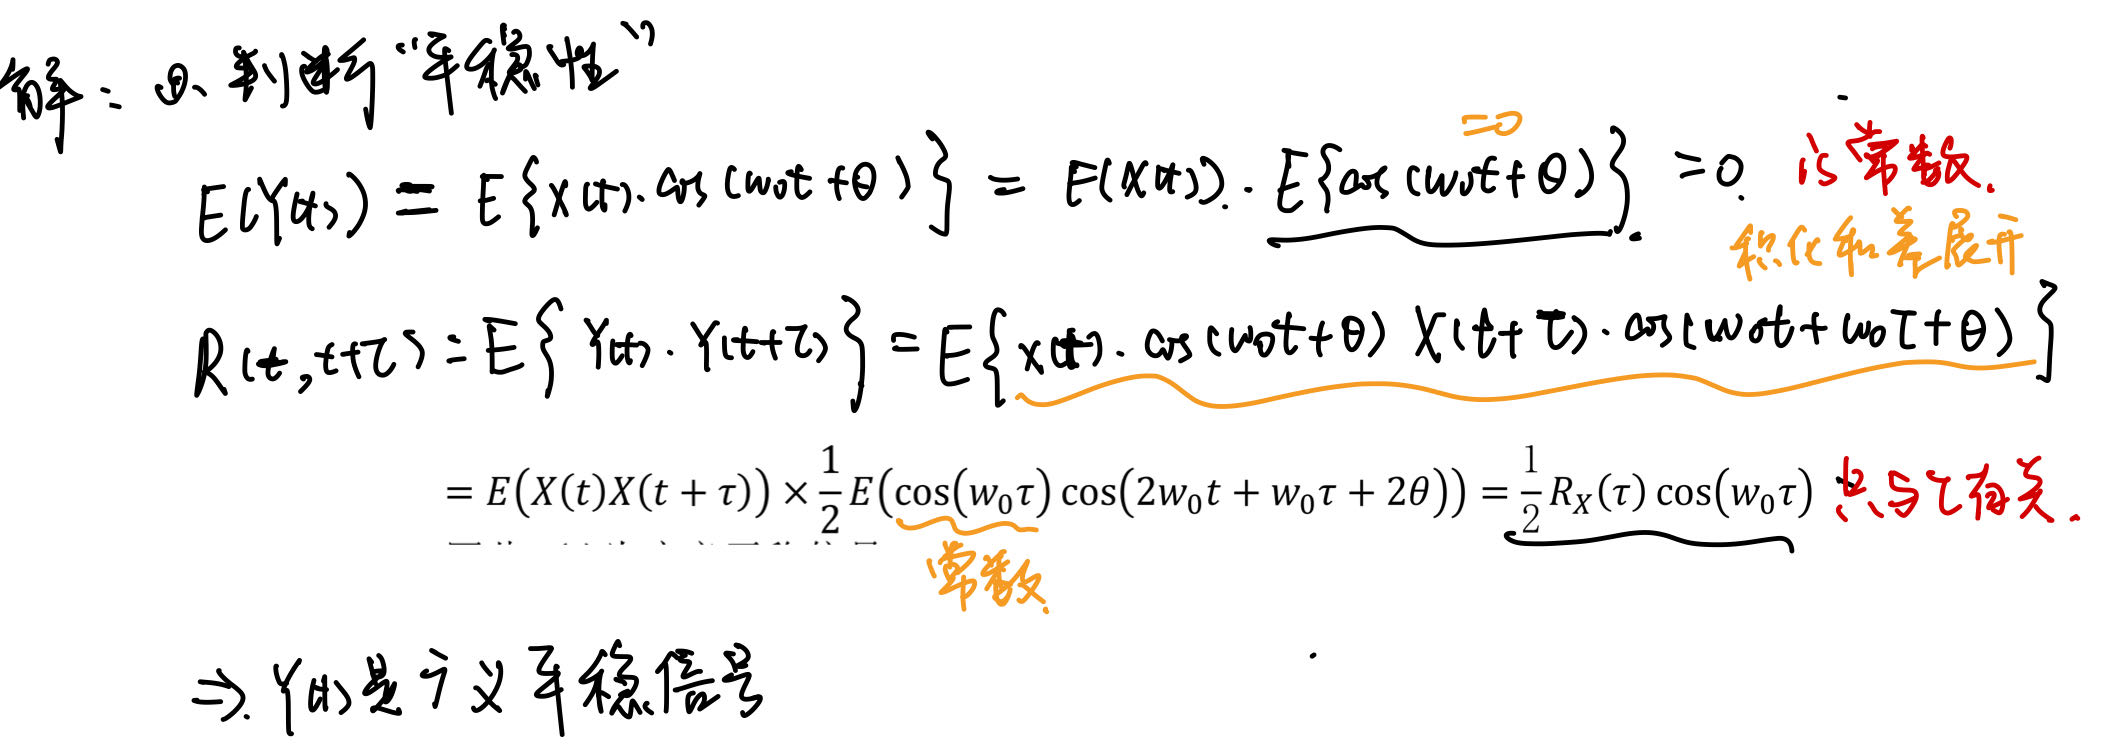 解：①、判断“平稳性”
E(Y(t)) = E{X(t)·cos(w₀t+θ)} = E(X(t))·E{cos(w₀t+θ)} =0. 是常数.
=0
积化和差展开
R(t,t+τ) = E{Y(t)·Y(t+τ)} = E{X(t)·cos(w₀t+θ) X(t+τ)·cos(w₀t+w₀τ+θ)}
= E(X(t)X(t + τ)) × 1/2 E(cos(w₀τ) cos(2w₀t + w₀τ + 2θ)) = 1/2 R_X(τ) cos(w₀τ) 只与τ有关.
常数.
⇒ Y(t)是广义平稳信号